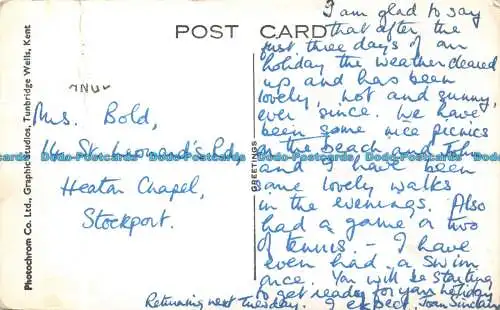 POST CARD
Photochrom Co. Ltd., Graphic Studios, Tunbridge Wells, Kent
GREETINGS
Mrs. Bold,
St. Leonard's Rd.,
Heaton Chapel,
Stockport.
I am glad to say
that after the
first three days of our
holiday the weather cleared
up and has been
lovely, hot and sunny,
ever since. We have
been some nice picnics
on the beach and John
and I have been
some lovely walks
in the evenings. Also
had a game or two
of tennis. - I have
even had a swim
once. You will be starting
to get ready for your holiday
I expect. Joan Sinclair
Returning next Tuesday.
Dodo-Postcards Dodo-Postcards Dodo-Postcards Dodo-Postcards Dodo-Postcards
Dodo-Postcards Dodo-Postcards